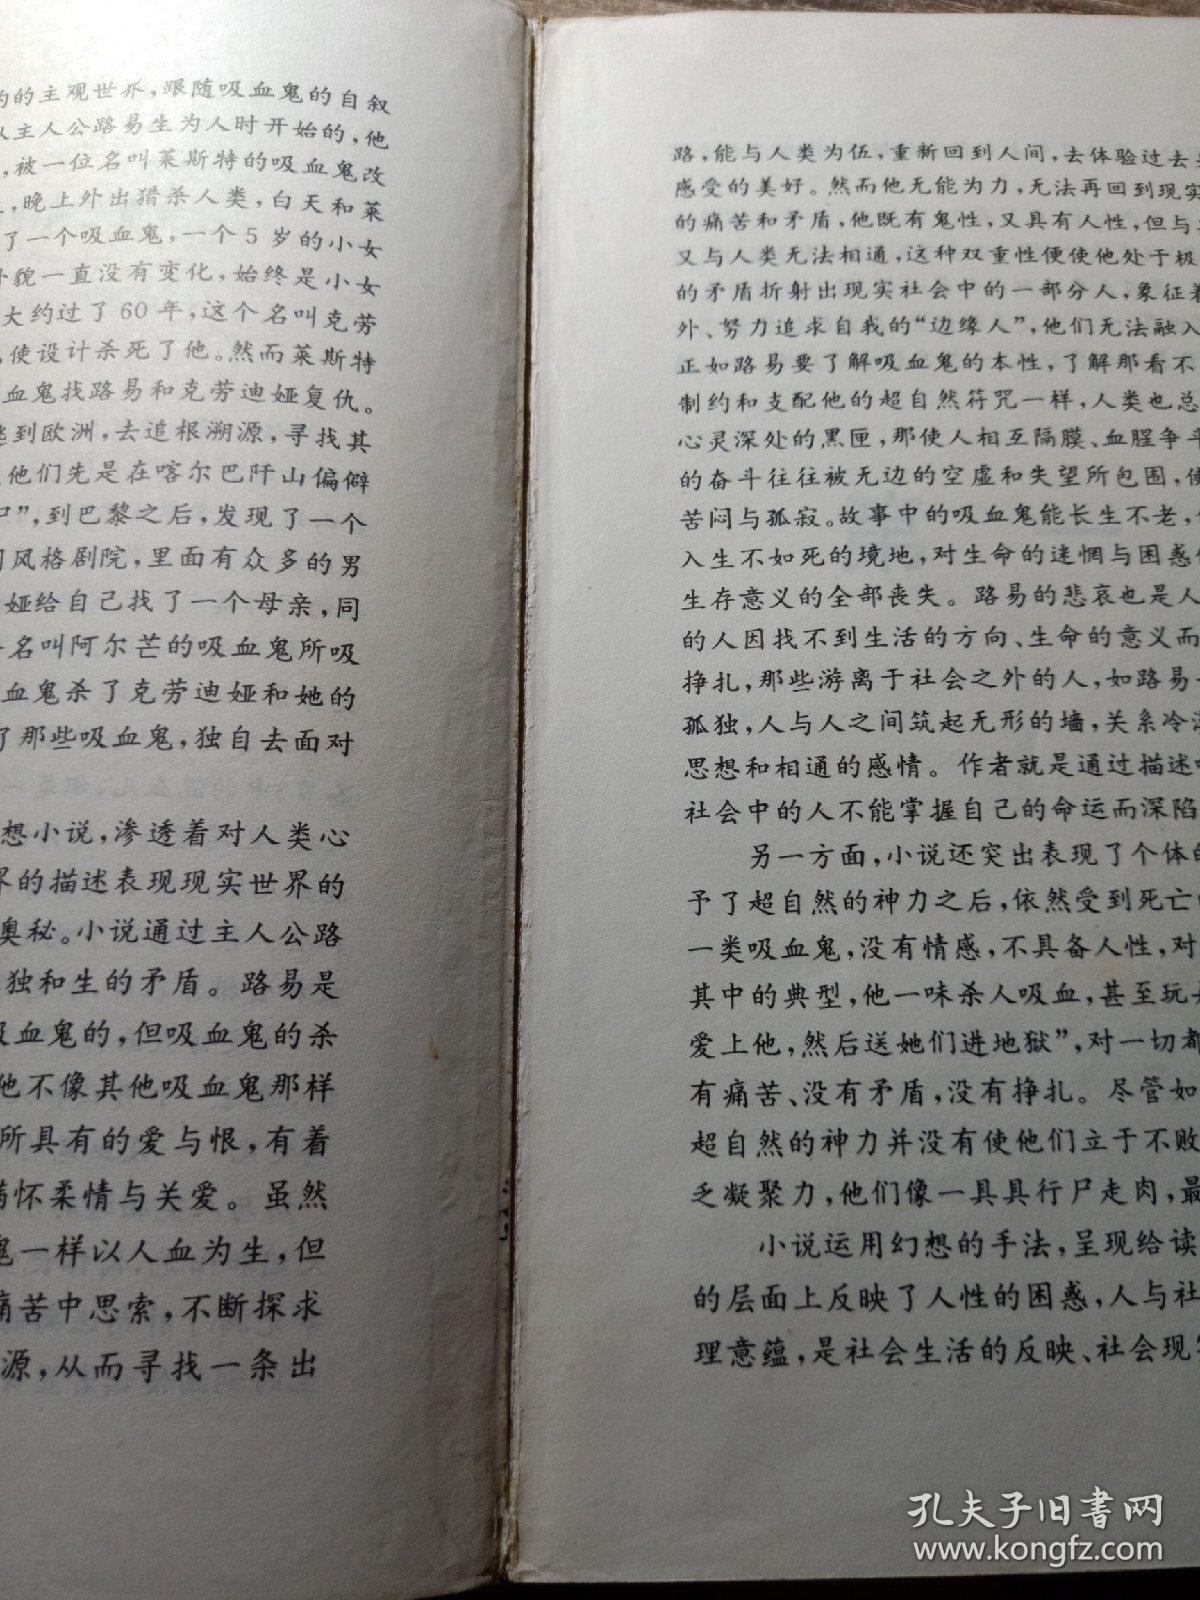 的主观世界,跟随吸血鬼的自叙
主人公路易生为人时开始的,他
,被一位名叫莱斯特的吸血鬼改
,晚上外出猎杀人类,白天和莱
了一个吸血鬼,一个5岁的小女
貌一直没有变化,始终是小女
大约过了60年,这个名叫克劳
使设计杀死了他。然而莱斯特
血鬼找路易和克劳迪娅复仇。
到欧洲,去追根溯源,寻找其
他们先是在喀尔巴阡山偏僻
”,到巴黎之后,发现了一个
风格剧院,里面有众多的男
娅给自己找了一个母亲,同
名叫阿尔芒的吸血鬼所吸
血鬼杀了克劳迪娅和她的
了那些吸血鬼,独自去面对
想小说,渗透着对人类心
界的描述表现现实世界的
奥秘。小说通过主人公路
独和生的矛盾。路易是
吸血鬼的,但吸血鬼的杀
他不像其他吸血鬼那样
所具有的爱与恨,有着
满怀柔情与关爱。虽然
鬼一样以人血为生,但
痛苦中思索,不断探求
源,从而寻找一条出
路,能与人类为伍,重新回到人间,去体验过去
感受的美好。然而他无能为力,无法再回到现实
的痛苦和矛盾,他既有鬼性,又具有人性,但与
又与人类无法相通,这种双重性便使他处于极
的矛盾折射出现实社会中的一部分人,象征着
外、努力追求自我的“边缘人”,他们无法融入
正如路易要了解吸血鬼的本性,了解那看不
制约和支配他的超自然符咒一样,人类也总
心灵深处的黑匣,那使人相互隔膜、血腥争斗
的奋斗往往被无边的空虚和失望所包围,使
苦闷与孤寂。故事中的吸血鬼能长生不老,
入生不如死的境地,对生命的迷惘与困惑
生存意义的全部丧失。路易的悲哀也是人
的人因找不到生活的方向、生命的意义而
挣扎,那些游离于社会之外的人,如路易
孤独,人与人之间筑起无形的墙,关系冷
思想和相通的感情。作者就是通过描述
社会中的人不能掌握自己的命运而深陷
另一方面,小说还突出表现了个体的
予了超自然的神力之后,依然受到死亡
一类吸血鬼,没有情感,不具备人性,对
其中的典型,他一味杀人吸血,甚至玩
爱上他,然后送她们进地狱”,对一切都
有痛苦、没有矛盾,没有挣扎。尽管如
超自然的神力并没有使他们立于不败
乏凝聚力,他们像一具具行尸走肉,最
小说运用幻想的手法,呈现给读
的层面上反映了人性的困惑,人与社
理意蕴,是社会生活的反映、社会现实
孔夫子旧书网
www.kongfz.com